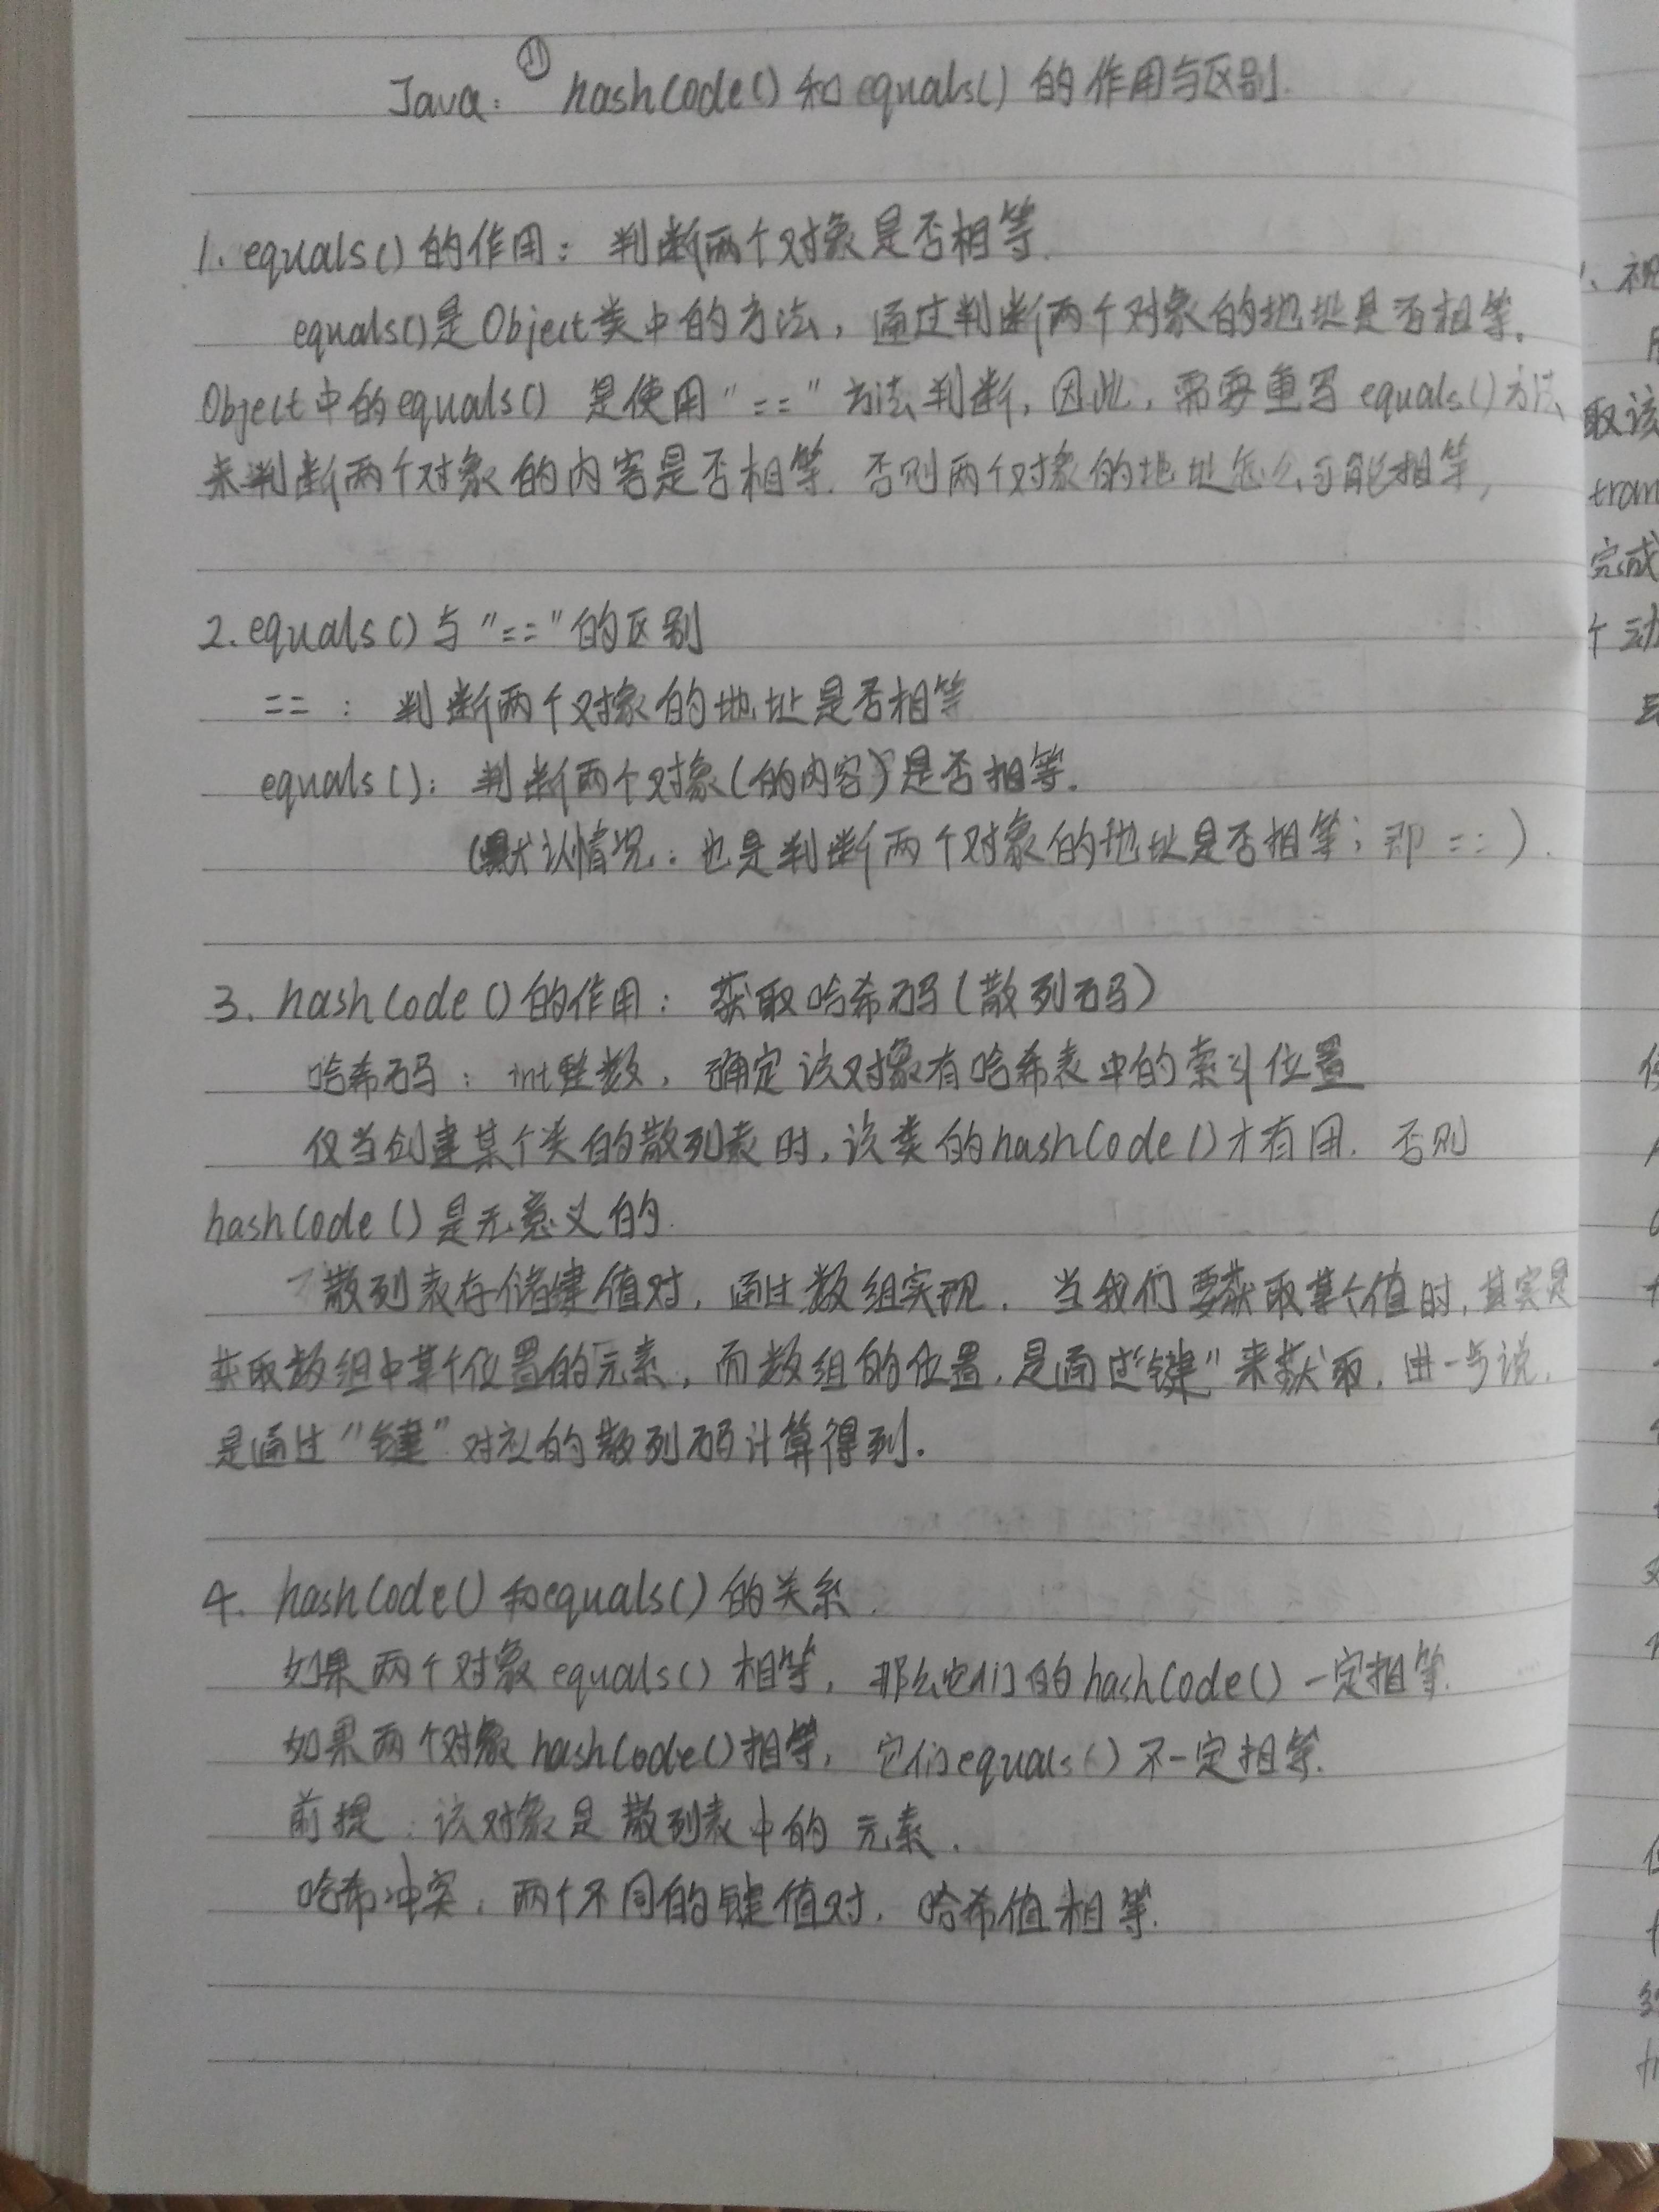 ⑪
Java: hashCode()和equals()的作用与区别.
1. equals()的作用: 判断两个对象是否相等.
equals()是Object类中的方法, 通过判断两个对象的地址是否相等.
Object中的equals() 是使用"=="方法判断, 因此, 需要重写equals()方法
来判断两个对象的内容是否相等. 否则两个对象的地址怎么可能相等,
2. equals()与"=="的区别
== : 判断两个对象的地址是否相等
equals(): 判断两个对象(的内容)是否相等.
(默认情况: 也是判断两个对象的地址是否相等; 即 ==).
3. hashCode()的作用: 获取哈希码(散列码)
哈希码: int整数, 确定该对象有哈希表中的索引位置
仅当创建某个类的散列表时, 该类的hashCode()才有用. 否则
hashCode()是无意义的.
散列表存储键值对, 通过数组实现. 当我们要获取某个值时, 其实是
获取数组中某个位置的元素, 而数组的位置, 是通过"键"来获取. 进一步说,
是通过"键"对应的散列码计算得到.
4. hashCode()和equals()的关系.
如果两个对象equals()相等, 那么它们的hashCode()一定相等.
如果两个对象hashCode()相等, 它们equals()不一定相等.
前提: 该对象是散列表中的元素.
哈希冲突: 两个不同的键值对, 哈希值相等.
取该
完成
个动